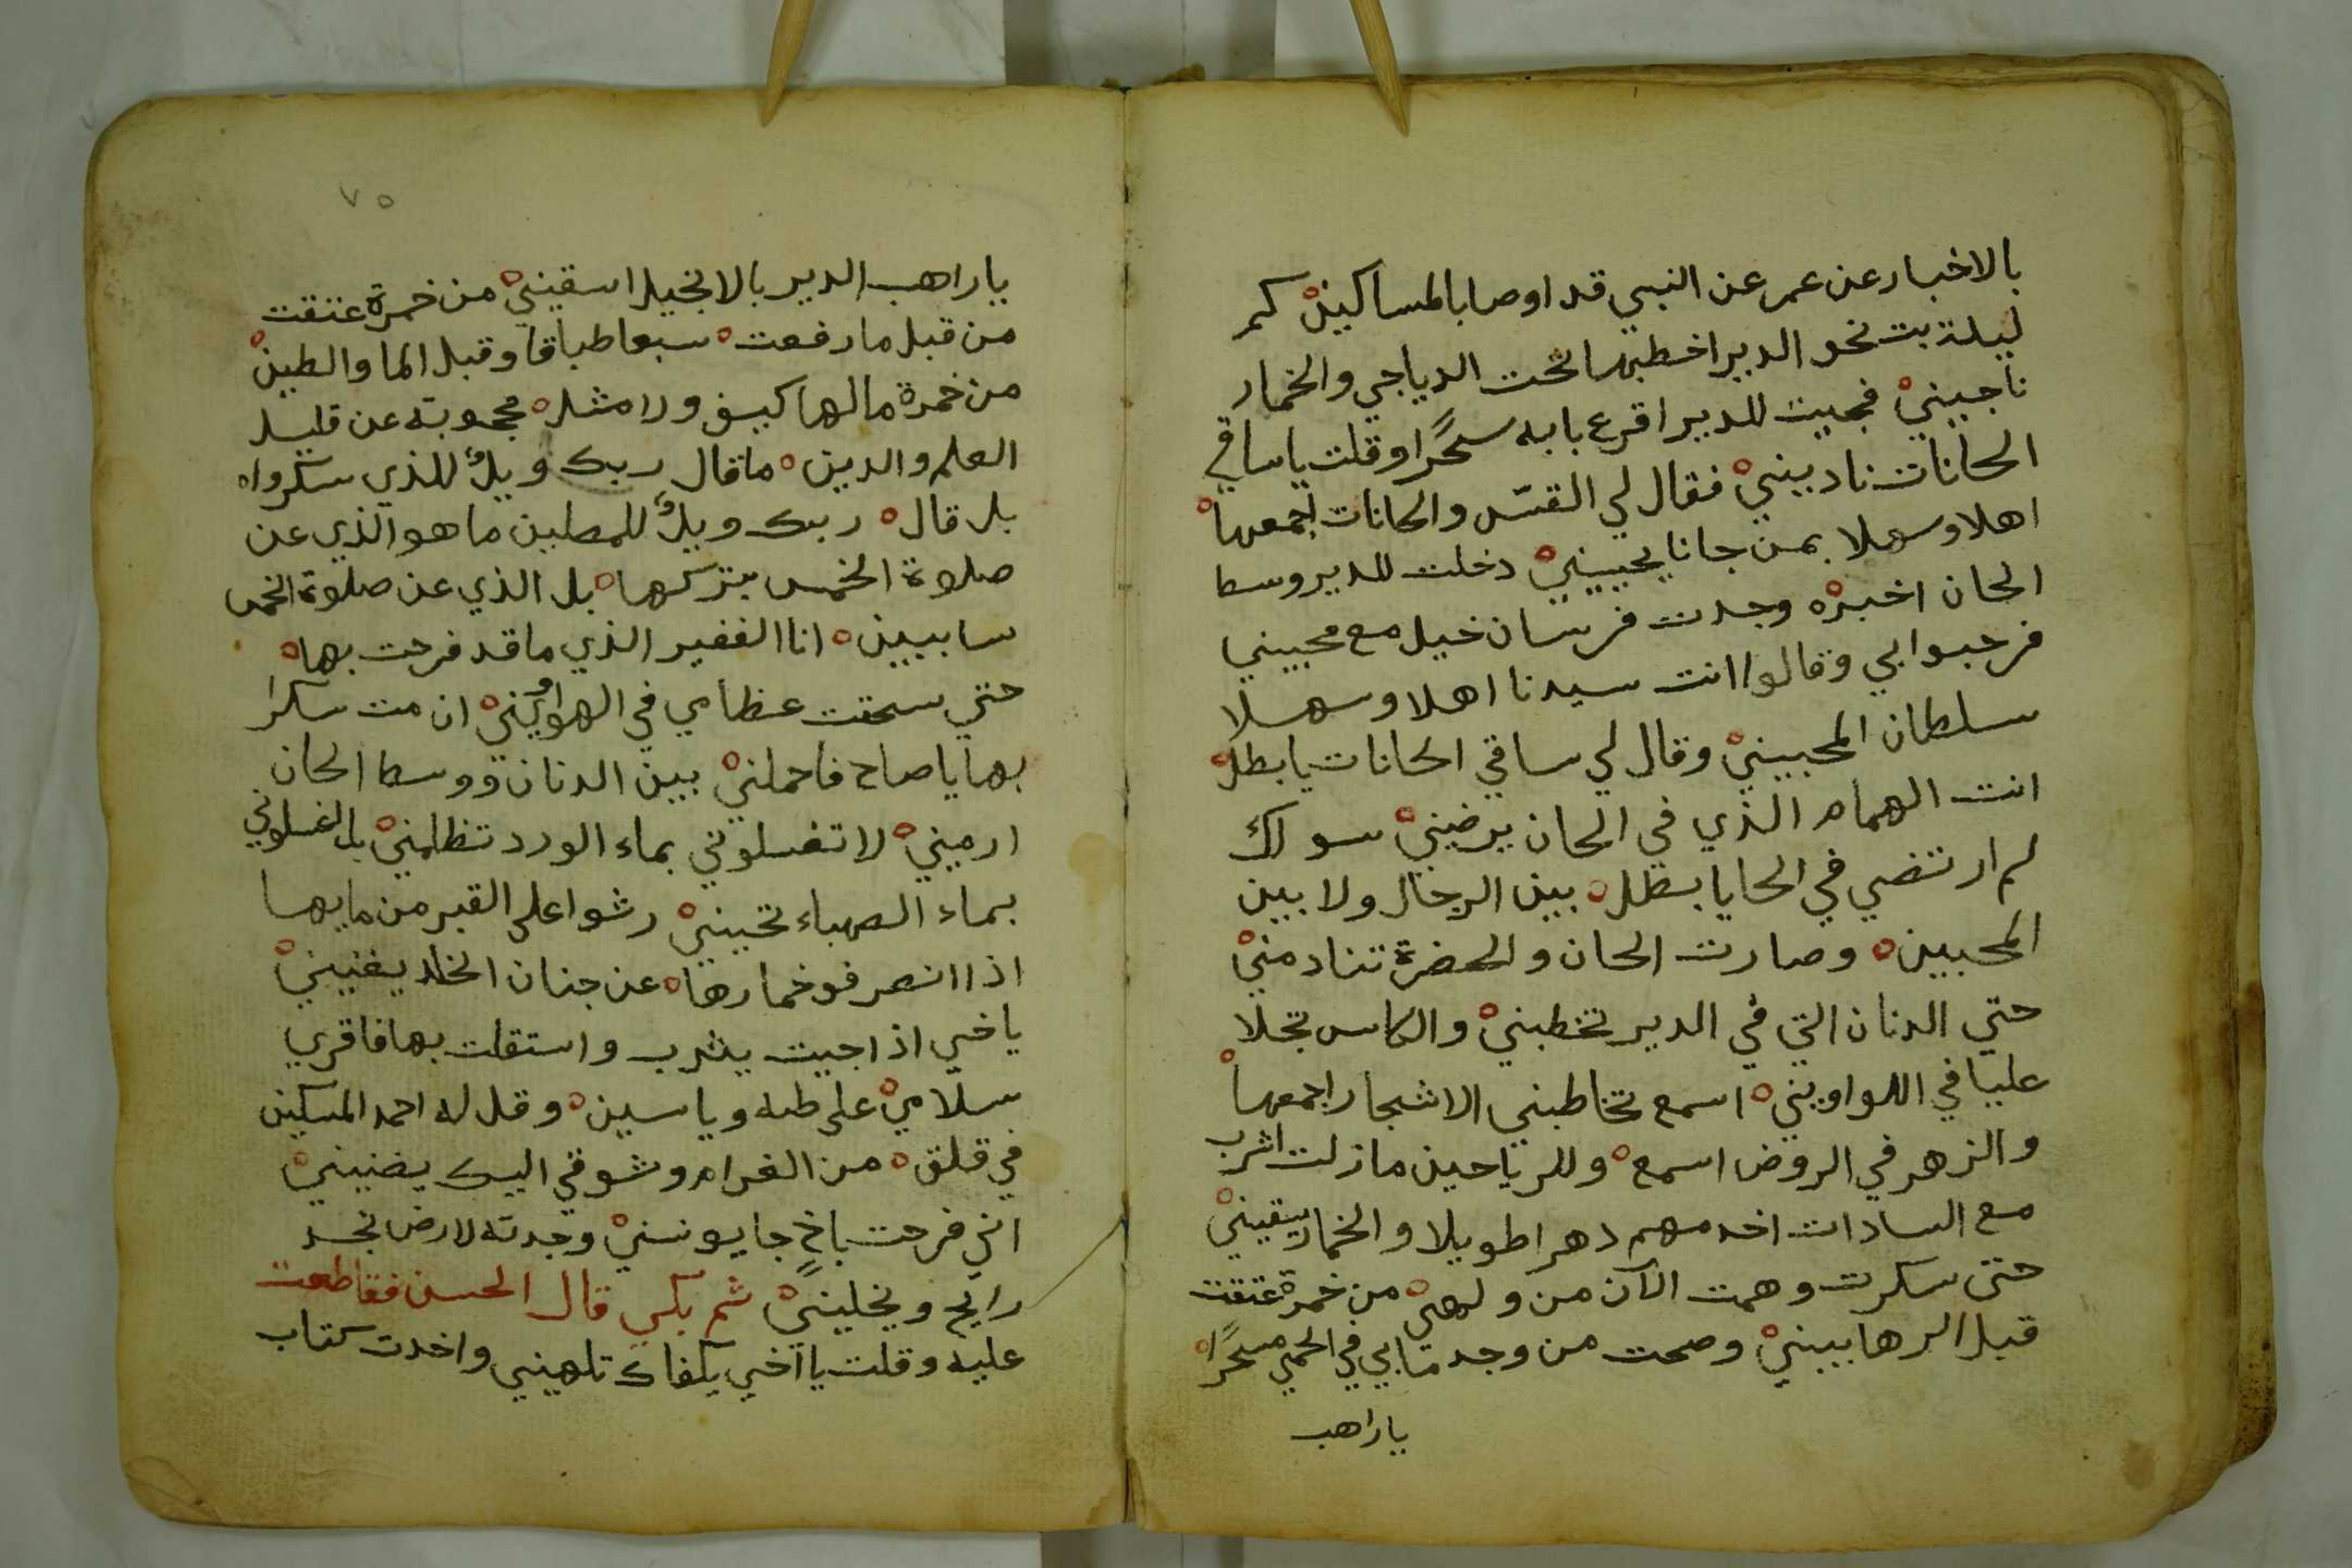 بالاخبار عن عمر عن النبي قد اوصا بالمساكين كم
ليلة بت نحو الدير اخطبها تحت الدياجي والخمار
ناجيني فجيت للدير اقرع بابه سحرًا وقلت يا ساقي
الحانات ناديني فقال لي القسّ والحانات اجمعها
اهلا وسهلا بمن جانا يحييني دخلت للدير وسط
الحان اخبره وجدت فرسان خيل مع محبيني
فرحبوا بي وقالوا انت سيدنا اهلا وسهلا
سلطان المحبيني وقال لي ساقي الحانات يا بطل
انت الهمام الذي في الحان يرضيني سواك
لم ارتضي في الحايا بطل بين الرجال ولا بين
المحبين وصارت الحان والحضرة تنادمني
حتي الدنان التي في الدير تخطبني والكاس تجلا
عليا في اللواويني اسمع تخاطبني الاشجار اجمعها
والزهر في الروض اسمع وللرياحين ما زلت اشرب
مع السادات اخدمهم دهرا طويلا والخمار يسقيني
حتى سكرت وهمت الآن من ولهي من خمرة عتقت
قبل الرهابيني وصحت من وجد ما بي في الحمي سحرًا
يا راهب
٧٥
يا راهب الدير بالانجيل اسقيني من خمرة عتقت
من قبل ما رفعت سبعا طباقا وقبل الما والطين
من خمرة ما لها كيف ولا مثل محجوبة عن قليل
العلم والدين ما قال ربك ويلٌ للذي سكروا
بل قال ربك ويلٌ للمصلين ما هو الذي عن
صلوة الخمس يتركها بل الذي عن صلوة الخمس
سابيين انا الفقير الذي ما قد فرحت بها
حتي سحقت عظامي في الهواويني ان مت سكرا
بها يا صاح فاحملني بين الدنان ووسط الحان
ارميني لا تغسلوني بماء الورد تظلمني بل اغسلوني
بماء الصهباء تحييني رشوا على القبر من مايها
اذا انصرفو خمارها عن جنان الخلد يغنيني
يا خي اذا جيت يثرب واستقلت بها فاقري
سلامي على طه وياسين وقل له احمد المسكين
في قلق من الغرام وشوقي اليك يضنيني
اني فرحت باخٍ جا يونسني وجدته لارض نجد
رايح ويخليني ثم بكي قال الحسن فقاطعت
عليه وقلت يا أخي يكفاك تلهيني واخدت كتاب